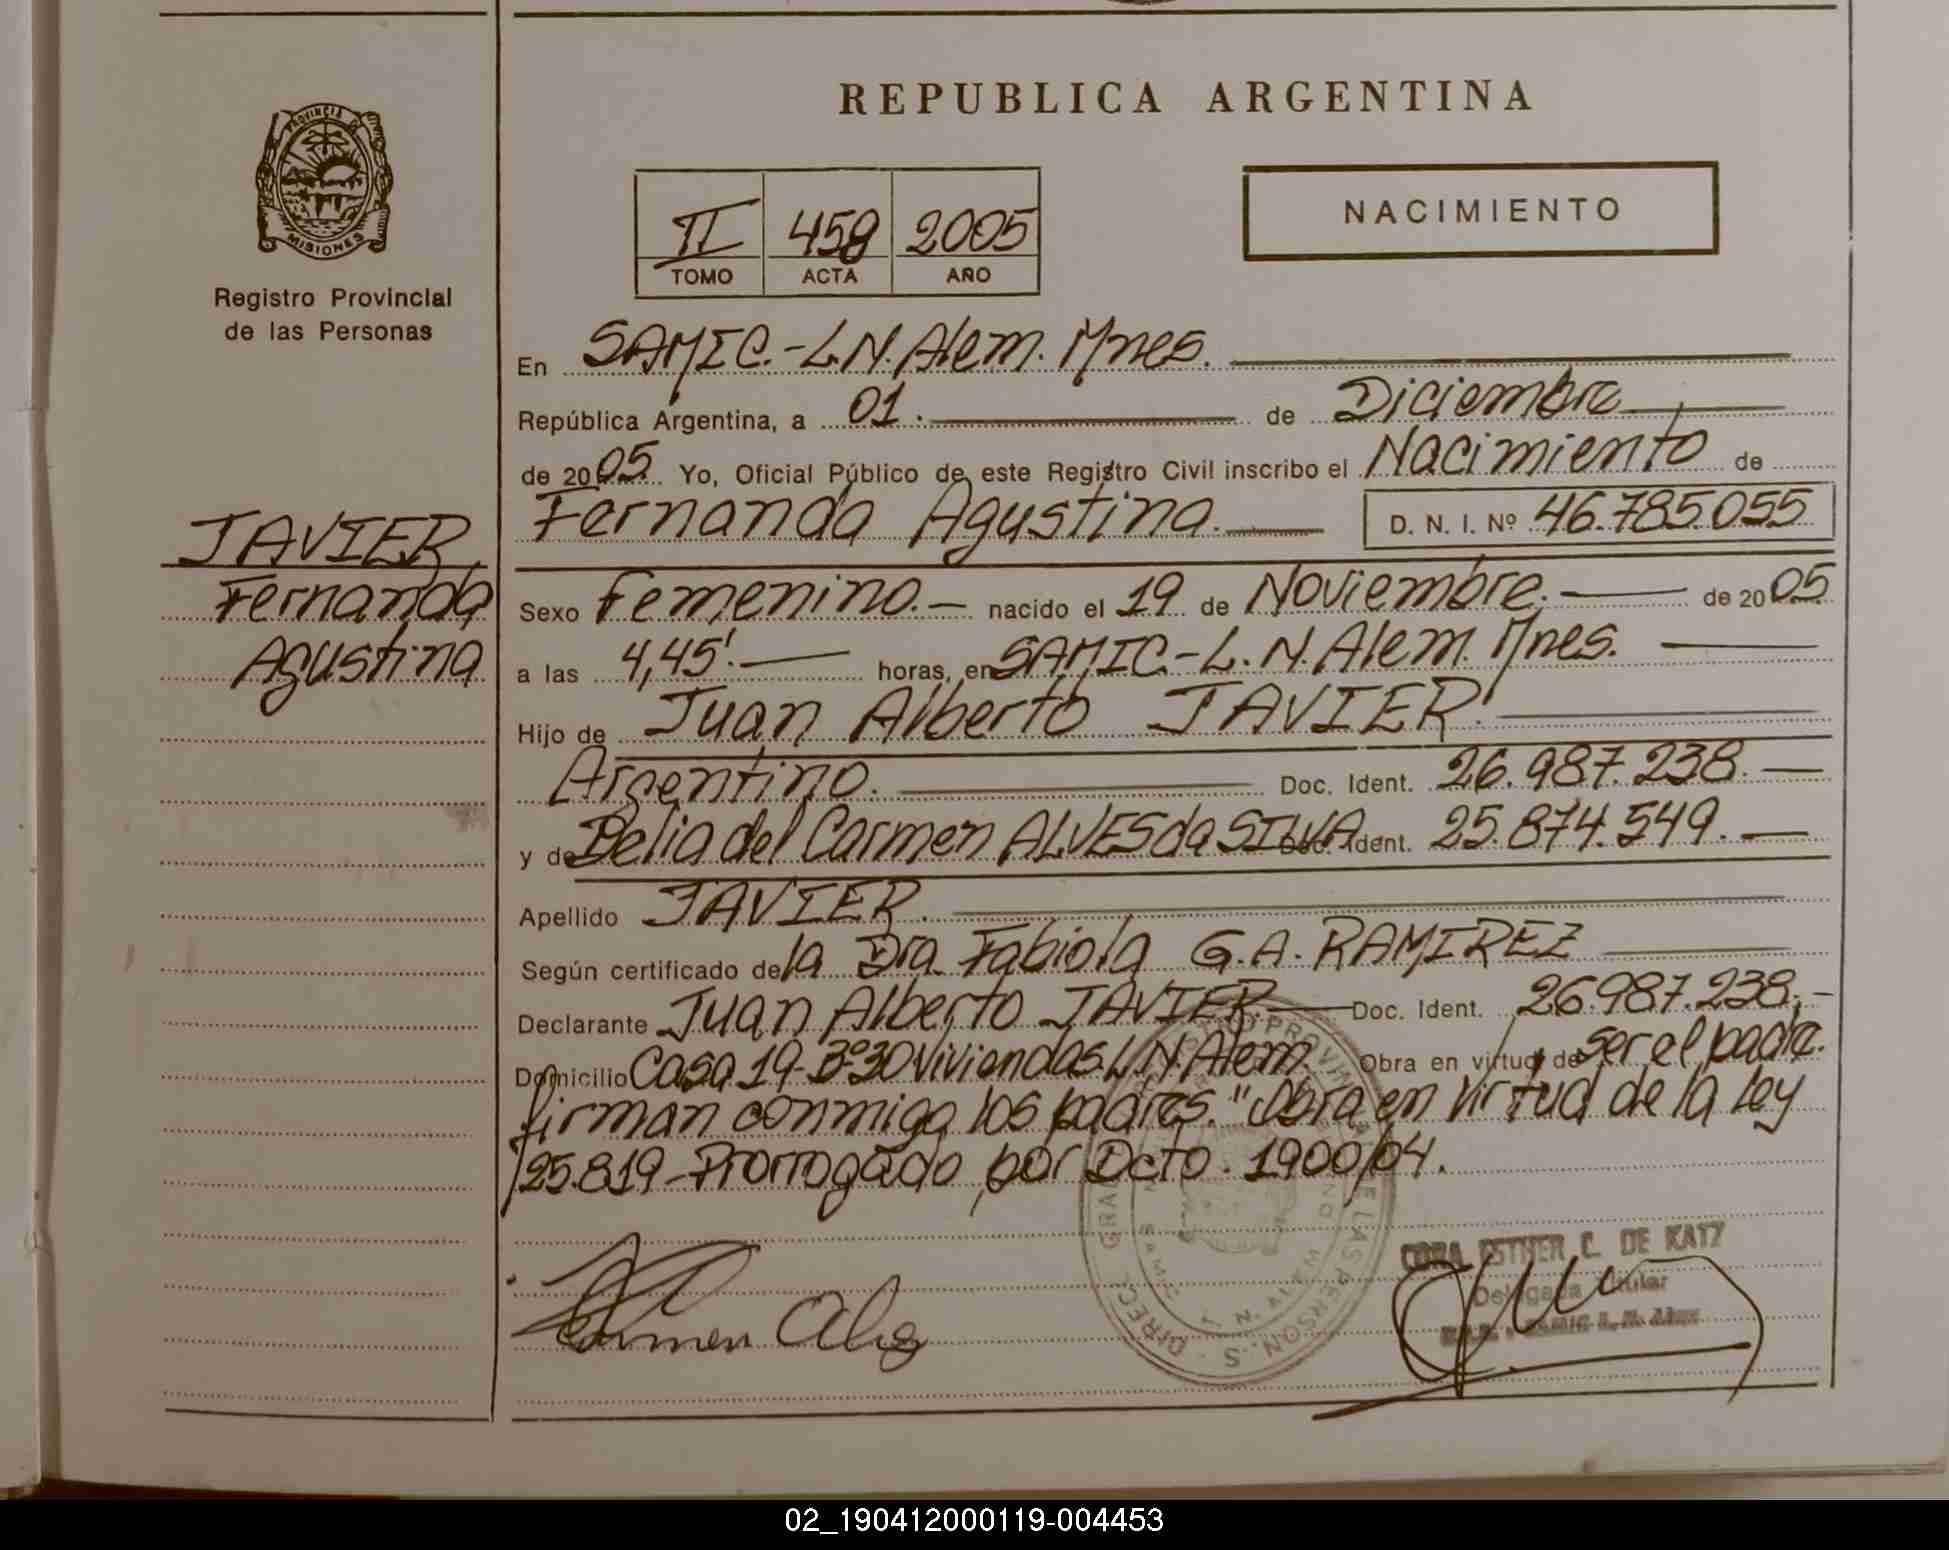 REPUBLICA ARGENTINA
PROVINCIA DE
MISIONES
Registro Provincial
de las Personas
II 458 2005
TOMO ACTA AÑO
NACIMIENTO
En SAMIC.-L.N.Alem.Mnes.
República Argentina, a 01. de Diciembre
de 2005. Yo, Oficial Público de este Registro Civil inscribo el Nacimiento de
Fernanda Agustina. D. N. I. Nº 46.785.055
JAVIER
Fernanda
Agustina
Sexo Femenino.- nacido el 19 de Noviembre. de 2005
a las 4,45'. horas, en SAMIC.-L.N.Alem.Mnes.
Hijo de Juan Alberto JAVIER.
Argentino. Doc. Ident. 26.987.238.-
y de Delia del Carmen ALVES da SILVA Doc. Ident. 25.874.549.-
Apellido JAVIER.
Según certificado de la Dra. Fabiola G.A. RAMIREZ
Declarante Juan Alberto JAVIER. Doc. Ident. 26.987.238.-
Domicilio Casa 19-Bº30 Viviendas.L.N.Alem. Obra en virtud de ser el padre.
firman conmigo los padres."Obra en Virtud de la Ley
25.819-Prorrogado por Dcto. 1900/04.
Carmen
CORA ESTHER C. DE KATZ
Delegada Titular
02_190412000119-004453